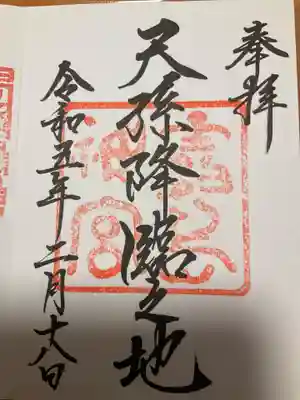 奉拝
天孫降臨之地
令和五年 二月十八日